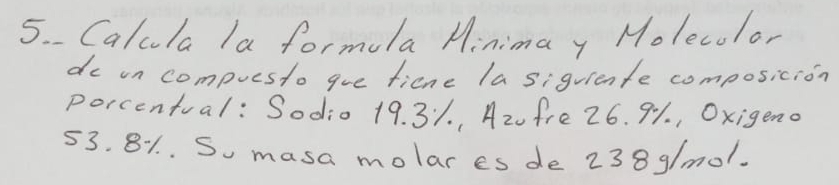 5.- Calcula la formula Minima y Molecular
de un compuesto que tiene la siguiente composición
porcentual: Sodio 19.3%, Azufre 26.9%, Oxigeno
53.8%. Su masa molar es de 238g/mol.